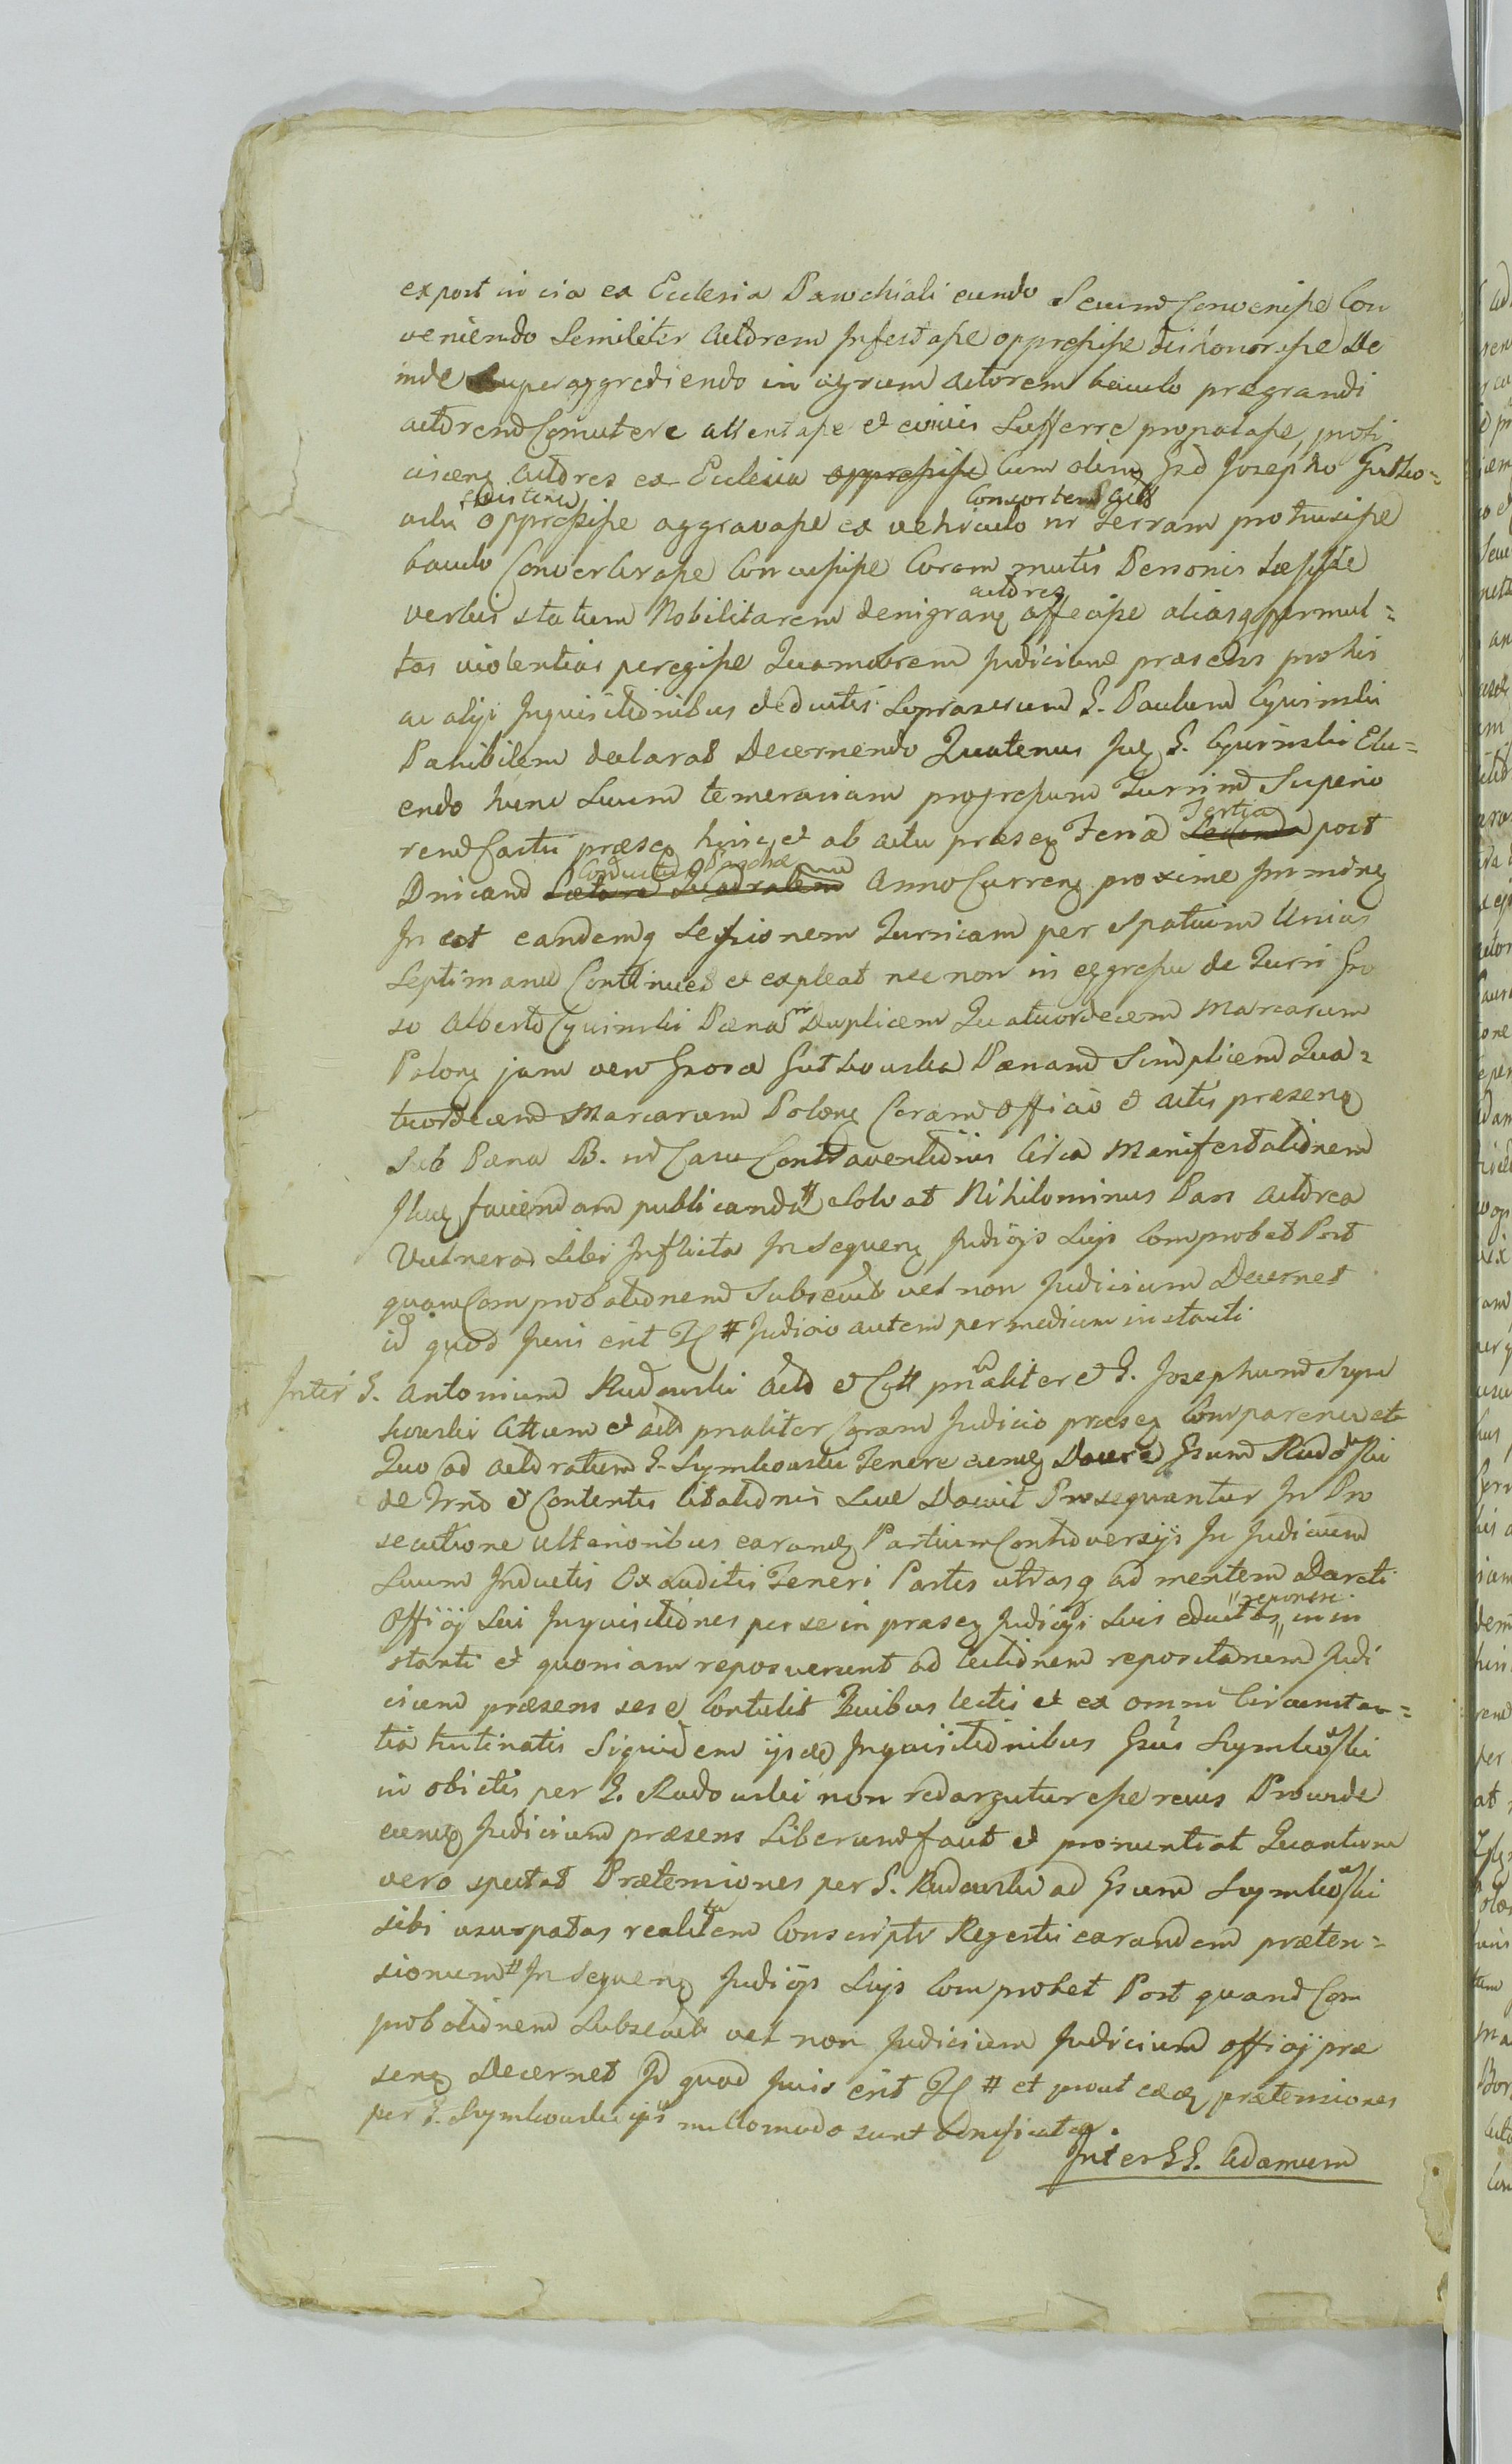 expost in via ex Ecclesia Parochiali eundo Secum Convenisse Con
veniendo Similiter Actorem Infestasse oppressisse dishonorasse De
inde Superaggrediendo in agrum actorem baculo praegrandi
actorem Comutere attentasse et convicis Sufferre propalasse, profi
ciscens actores ex Ecclesia oppressisse cum olim Gso Josepho Gutko=
existens Consortem Gutt
oppressisse aggravasse ex vehiculo in Terram protrusisse
baculo Converberasse Concussisse Coram multis Personis
actores
verbis statum Nobilitarem denigran affecisse aliasq permul=
tas violentias peregisse Quamobrem Judicium praesens prolis
ac alys Inquisitionibus deductis Suprascrum G. Paulum Cywinski
Pahibilem declarat Decernendo Quatenus Juq G. Cywinski Elu=
endo hunc Suum temerariam progressum Turrim Superio
Tertia
rem Castri praeseq hinc et ab actu praeseq Feria Secunda post
Conductus Paschae
Dnicam Anno Currenq proxime
In eat eandemq Sessionem Turricam per spatium Unius
Septimanae Continuet et expleat nec non in eggressu de Turri Gro
so Alberto Cywinski Paena Duplicem Quatuordecem Marcarum
Polonq jam vero Grosa Gutkowska Paenam Simplicem Qua=
tuordecem Marcarum Polonq Coram Officio et actis praesenq
Sub Paena B. in Casu Contraventionis Circa Manifestationem
faciendam publicanda # solvat Nihilominus Pars actorea
Vulnera Sibi Inflicta In Sequenq Judiciis Suis Comprobet Post
quam Comprobationem Subsecut vel non Judicium Decernet
id quod Juris erit # Judicio autem per medium instanti
Inter G. Antonium Rudowski acto et Citt prnaliter et G. Josephum Szym
kowski Cittum et acto prnaliter Coram Judicio praeseq Comparen etc
Quo ad actoratum G. Szymkowski Tenere eumq Docere Gsum Rudoski
de Trno et Contentis Citationis Suae Docuit Prosequantur In Pro
secutione ulterioribus earamq Partium Controversiis In Judicium
Suum Inductis Exauditis Teneri Partes utrasq ad mentem Decreti
reponere
Officij Sui Inquisitiones per se in praeseq Judicijs Suis eductas in in
stanti et quoniam reposuerunt ad lectionem repositarum Judi
cium praesens sese Contulit Quibus lectis et ex omni Circumstan=
tia trutinatis Siquidem ijsdem Inquisitionibus Gsus Szymkoski
in obictis per G. Rudowski non redarguitur esse reius Proinde
eumq Judicium praesens Liberum facit et pronuntiat Quantum
vero spectat Praetensiones per G. Rudowski ad Gsum Szymkoski
sibi usurpatas realitatem Conscripto Regestri earandem praeten=
sionum # In Sequenq Judicijs Suis Comprobet Post quam Com
probationem Subsecut vel non Judicium Judicium officij prae
senq Decernet Id quod Juris erit # et prout eaeq praetensiones
per G. Szymkowski ipsi nullomodo sunt bonificatae.
Inter GG. Adamum